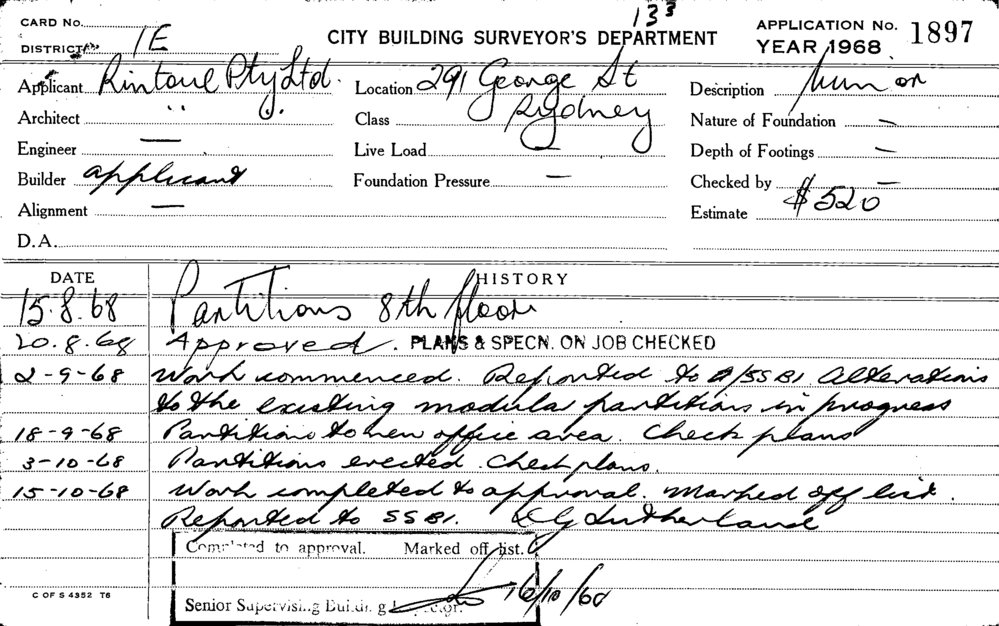 133
CARD No.
DISTRICT 1E
CITY BUILDING SURVEYOR'S DEPARTMENT
APPLICATION No. 1897
YEAR 1968
Applicant Rintoul Pty Ltd.
Location 291 George St
Sydney
Description
Architect "
Class
Nature of Foundation —
Engineer —
Live Load
Depth of Footings —
Builder applicant
Foundation Pressure —
Checked by —
Alignment —
Estimate $520
D.A.
DATE HISTORY
15.8.68 Partitions 8th floor
20.8.68 Approved. PLANS & SPECN. ON JOB CHECKED
2-9-68 Work commenced. Reported to A/SSBI. Alterations
to the existing modula partitions in progress
18-9-68 Partitions to new office area. Check plans
3-10-68 Partitions erected. Check plans.
15-10-68 Work completed to approval. Marked off list.
Reported to SSBI. Sutherland
Completed to approval. Marked off list.
16/10/68
Senior Supervising Building Inspector.
C OF S 4352 T6